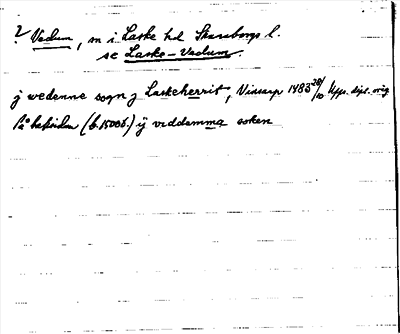 ? Vadum, sn i Laske hd Skaraborgs l.
se Laske-Vadum.
j wedenne sogn j Laskeherrit, Vinsarp 1483 28/10 Upps. dipl. orig
På baksidan (b. 1500t.) ij veddamma soken